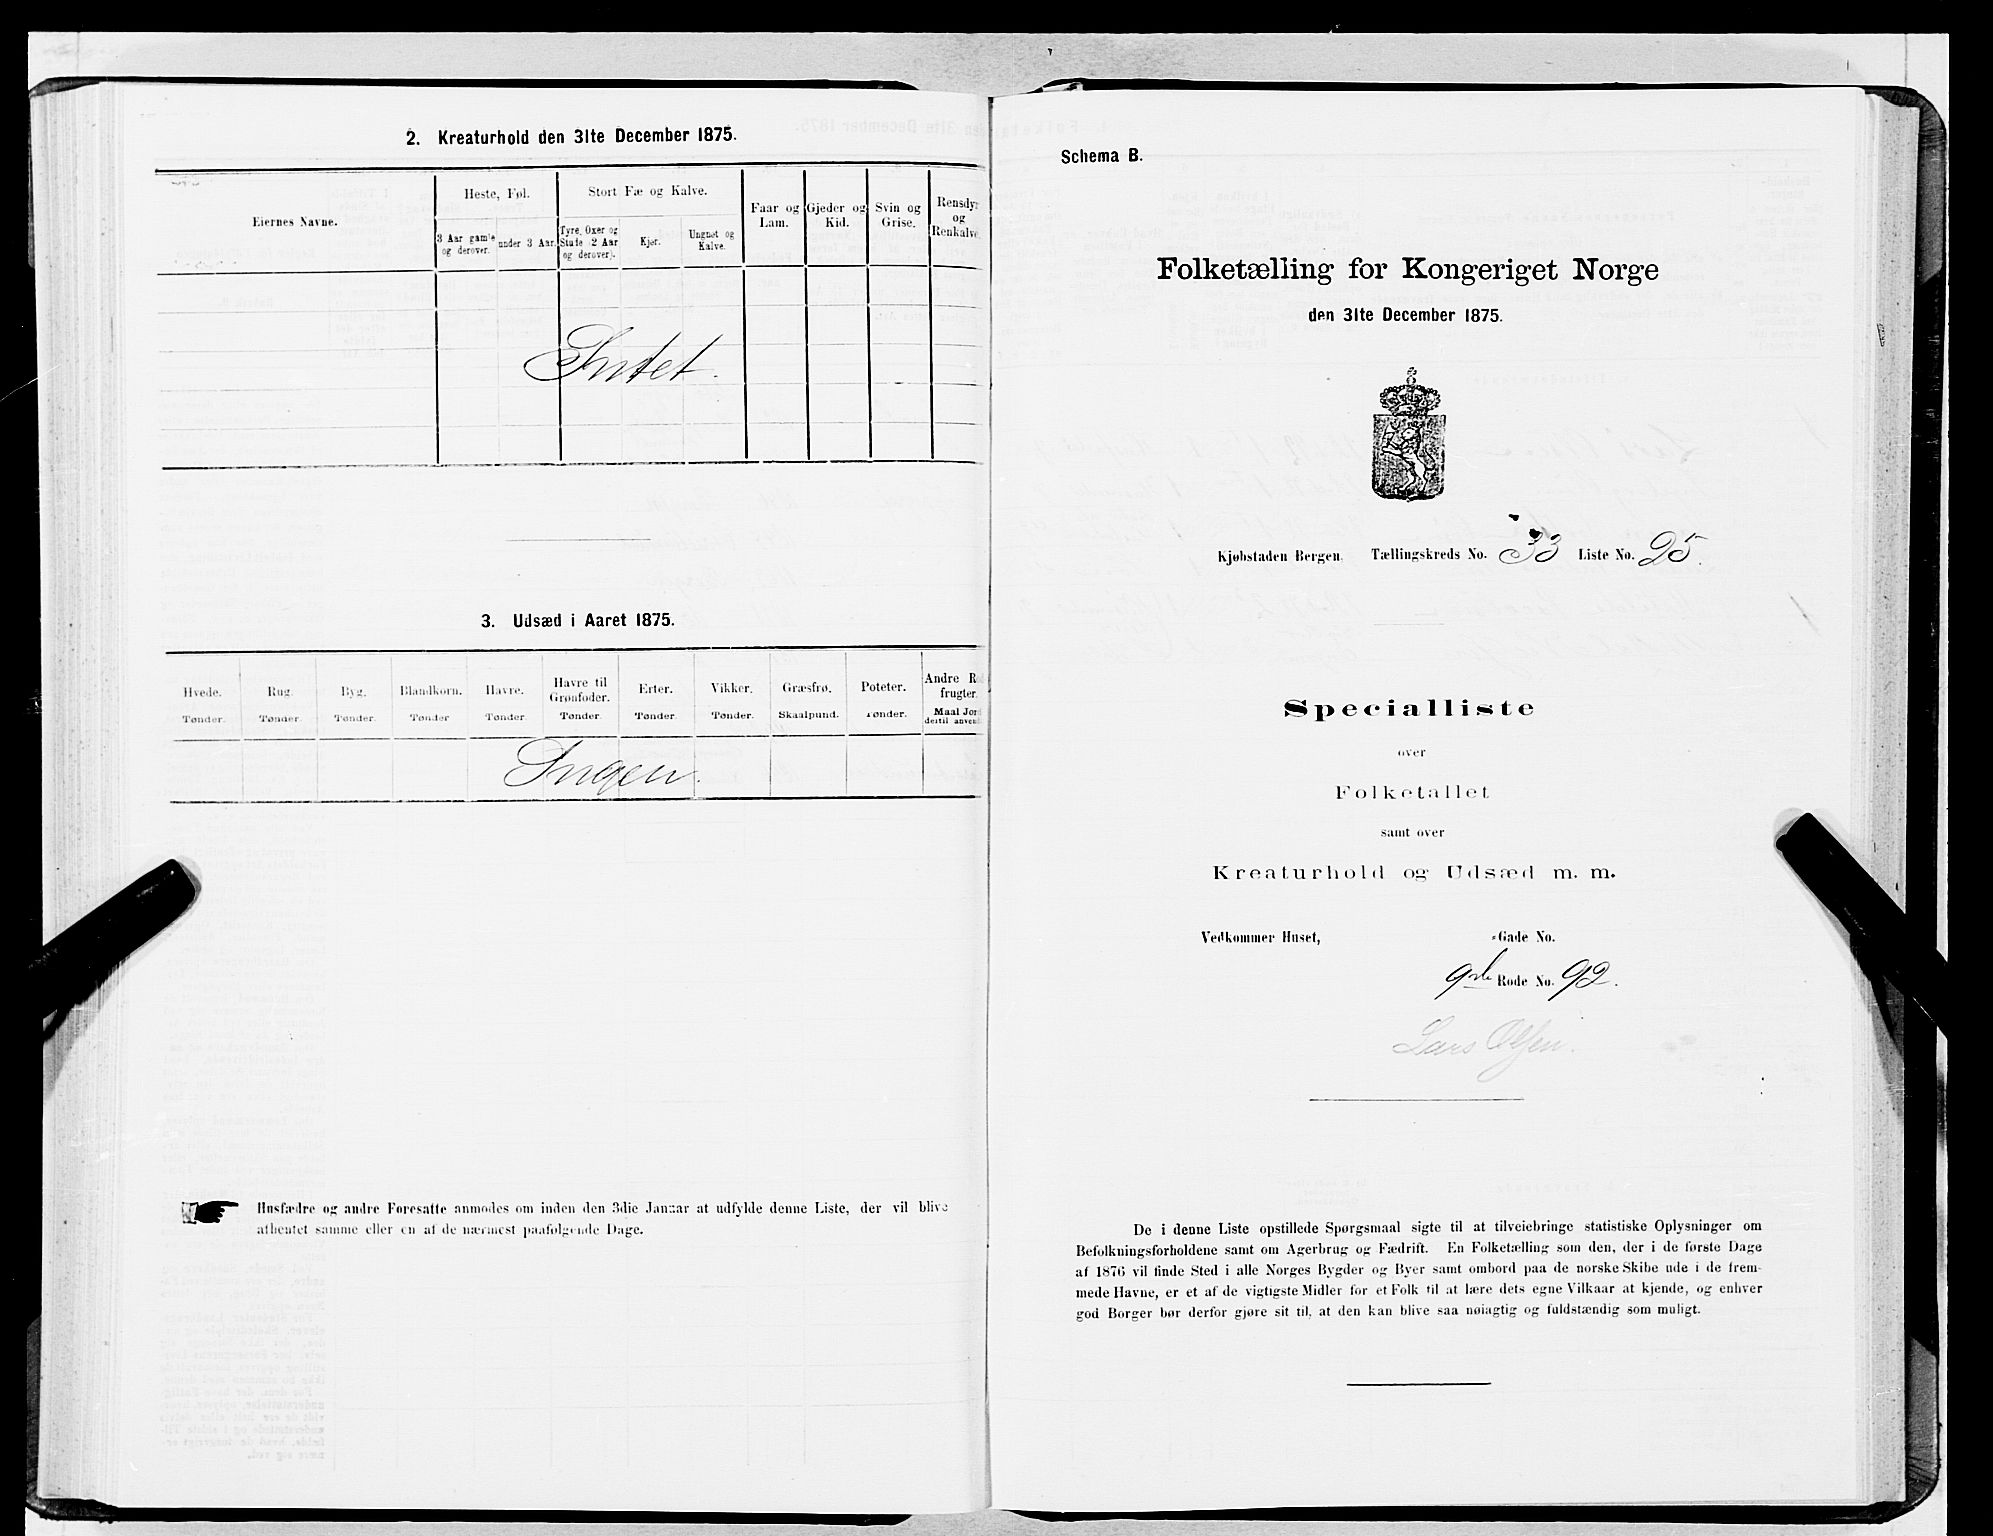 2. Kreaturhold den 31te December 1875.
Eiernes Navne.
Heste, Føl.
3 Aar gamle og derover.
under 3 Aar.
Stort Fæ og Kalve.
Tyre, Oxer og Stude (2 Aar og derover).
Kjør.
Ungnøt og Kalve.
Faar og Lam.
Gjeder og Kid.
Svin og Grise.
Rensdyr og Renkalve.
Intet.
3. Udsæd i Aaret 1875.
Hvede. Rug. Byg. Blandkorn. Havre. Havre til Grønfoder. Erter. Vikker. Græsfrø. Poteter. Andre Rodfrugter.
Tønder. Tønder. Tønder. Tønder Tønder. Tønder. Tønder. Tønder. Skaalpund. Tønder. Maal Jord dertil anvendt.
Ingen.
Husfædre og andre Foresatte anmodes om inden den 3die Januar at udfylde denne Liste, der vil blive
afhentet samme eller en af de nærmest paafølgende Dage.
Schema B.
Folketælling for Kongeriget Norge
den 31te December 1875.
Kjøbstaden Bergen. Tællingskreds No. 33 Liste No. 25.
Specialliste
over
Folketallet
samt over
Kreaturhold og Udsæd m. m.
Vedkommer Huset, Gade No.
9de Rode No. 92.
Lars Olsen.
De i denne Liste opstillede Spørgsmaal sigte til at tilveiebringe statistiske Oplysninger om
Befolkningsforholdene samt om Agerbrug og Fædrift. En Folketælling som den, der i de første Dage
af 1876 vil finde Sted i alle Norges Bygder og Byer samt ombord paa de norske Skibe ude i de frem-
mede Havne, er et af de vigtigste Midler for et Folk til at lære dets egne Vilkaar at kjende, og enhver
god Borger bør derfor gjøre sit til, at den kan blive saa nøiagtig og fuldstændig som muligt.